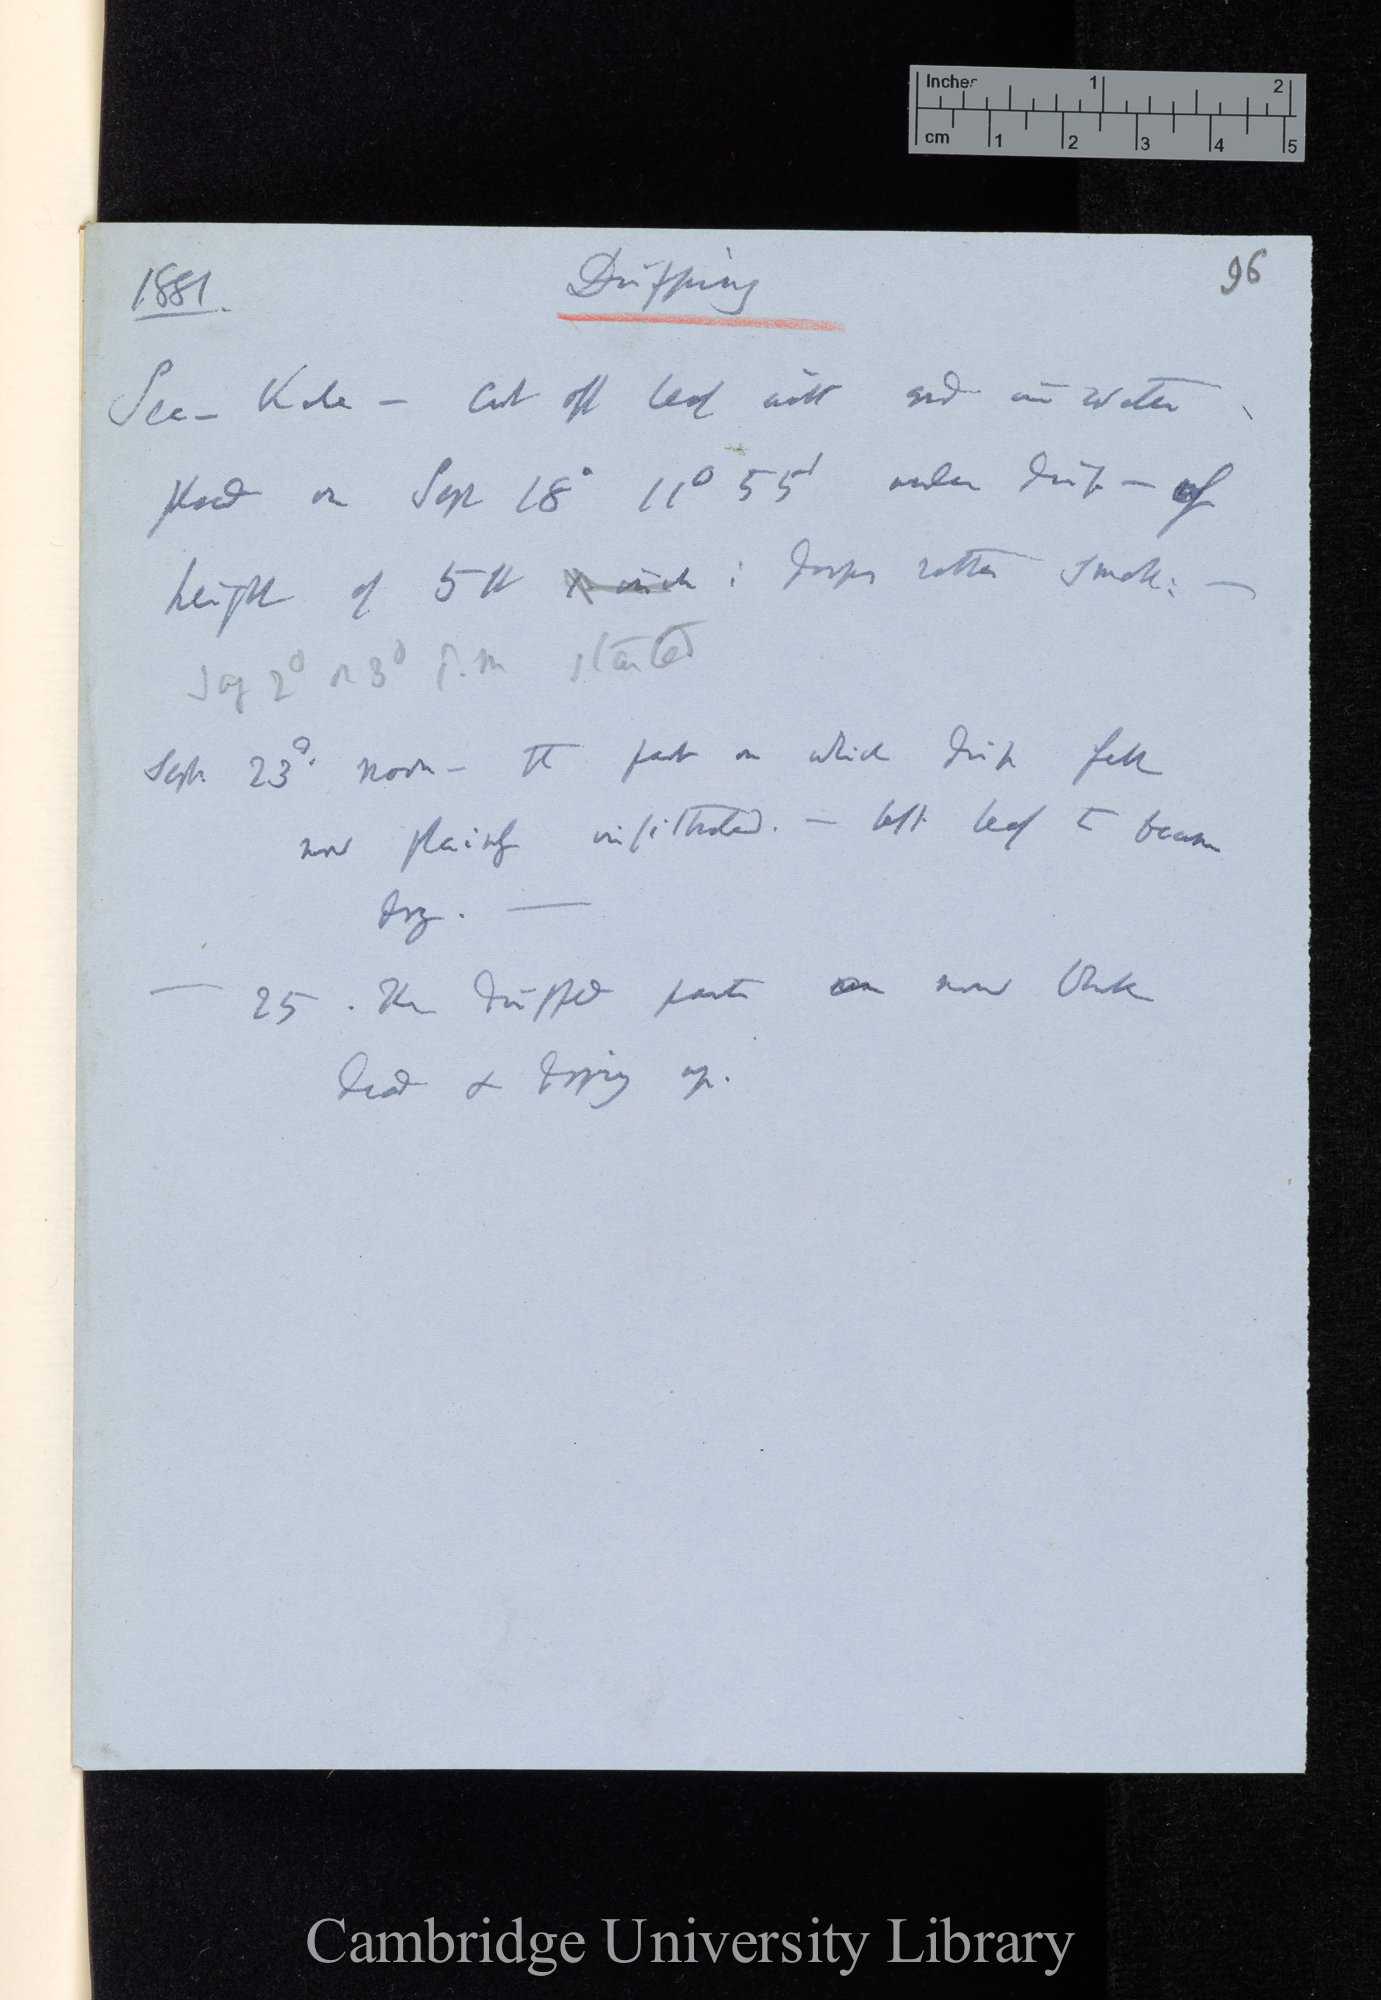 Inches 1 2
cm 1 2 3 4 5
1881. Dripping 96
Sea-Kale — cut off leaf with end in water,
placed on Sept 18° 11° 55' under drip — of
height of 5 ft : drops rather small: —
Say 2° or 3° P.m started
Sept. 23°. noon — The part on which drip fell
now plainly infiltrated. — left leaf to become
dry. —
— 25. The dripped parts are now
dead & drying up.
Cambridge University Library